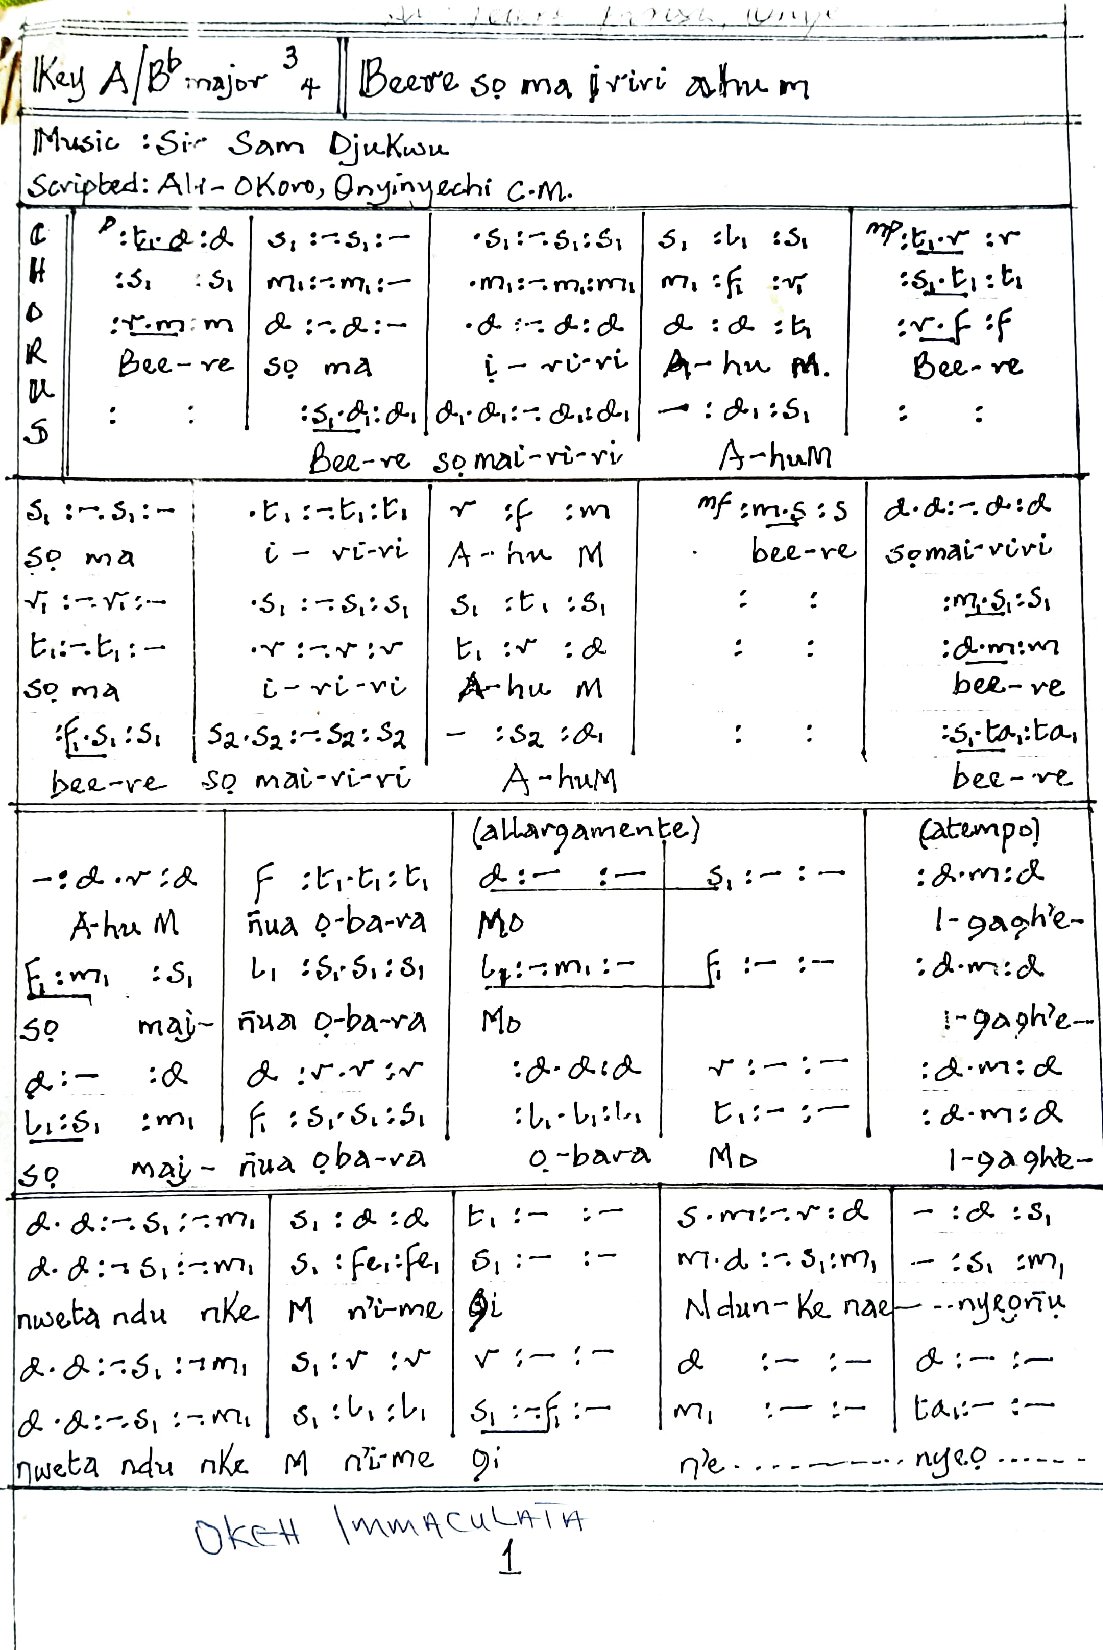 Key A/Bb major 3/4 Beere sọ ma iriri ahu m
Music : Sir Sam Ojukwu
Scripted: Ali-Okoro, Onyinyechi C.M.
CHORUS
p :t₁.d :d | s₁ :-.s₁ :- | .s₁ :-.s₁ :s₁ | s₁ :l₁ :s₁ | mp :t₁.r :r
:s₁ :s₁ | m₁ :-.m₁ :- | .m₁ :-.m₁ :m₁ | m₁ :f₁ :r₁ | :s₁.t₁ :t₁
:r.m :m | d :-.d :- | .d :-.d :d | d :d :t₁ | :r.f :f
Bee-re sọ ma i-ri-ri A-hu M. Bee-re
: : | :s₁.d₁ :d₁ | d₁.d₁ :-.d₁ :d₁ | - :d₁ :s₁ | : :
Bee-re sọ mai-ri-ri A-huM
s₁ :-.s₁ :- | .t₁ :-.t₁ :t₁ | r :f :m | mf :m.s :s | d.d :-.d :d
sọ ma i-ri-ri A-hu M bee-re sọmai-riri
r₁ :-.r₁ :- | .s₁ :-.s₁ :s₁ | s₁ :t₁ :s₁ | : : | :m₁.s₁ :s₁
t₁ :-.t₁ :- | .r :-.r :r | t₁ :r :d | : : | :d.m :m
sọ ma i-ri-ri A-hu M bee-re
:f₁.s₁ :s₁ | s₂.s₂ :-.s₂ :s₂ | - :s₂ :d₁ | : : | :s₁.ta₁ :ta₁
bee-re sọ mai-ri-ri A-huM bee-re
(allargamente) (atempo)
- :d.r :d | f :t₁.t₁ :t₁ | d :- :- | s₁ :- :- | :d.m :d
A-hu M ñua ọ-ba-ra Mo I-gagh'e-
f₁ :m₁ :s₁ | l₁ :s₁.s₁ :s₁ | l₁ :-.m₁ :- | f₁ :- :- | :d.m :d
sọ maị- ñua ọ-ba-ra Mo I-gagh'e-
d :- :d | d :r.r :r | :d.d :d | r :- :- | :d.m :d
l₁ :s₁ :m₁ | f₁ :s₁.s₁ :s₁ | :l₁.l₁ :l₁ | t₁ :- :- | :d.m :d
sọ maị- ñua ọba-ra ọ-bara Mo I-gaghe-
d.d :-.s₁ :-.m₁ | s₁ :d :d | t₁ :- :- | s.m :-.r :d | - :d :s₁
d.d :-.s₁ :-.m₁ | s₁ :fe₁ :fe₁ | s₁ :- :- | m.d :-.s₁ :m₁ | - :s₁ :m₁
nweta ndu nke M n'i-me gi Ndun-ke nae- --nyeọñụ
d.d :-.s₁ :-.m₁ | s₁ :r :r | r :- :- | d :- :- | d :- :-
d.d :-.s₁ :-.m₁ | s₁ :l₁ :l₁ | s₁ :-.f₁ :- | m₁ :- :- | ta₁ :- :-
nweta ndu nke M n'i-me gi n'e------------nyeọ------
OKEH IMMACULATA
1